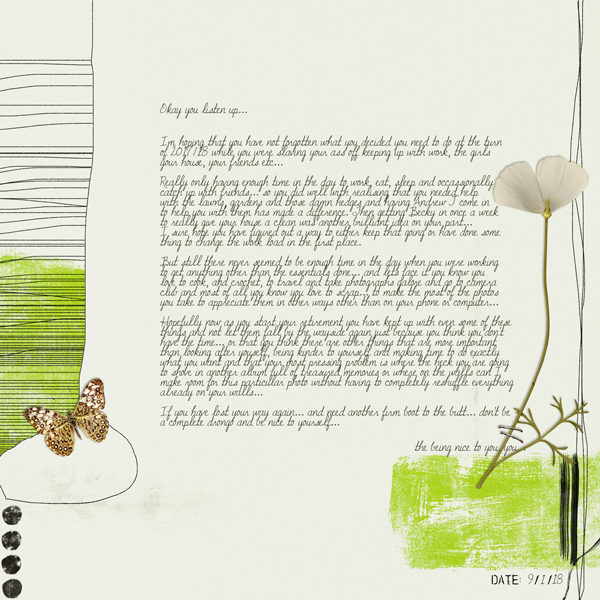 Okay you listen up...
I'm hoping that you have not forgotten what you decided you need to do at the turn
of 2017/18 while you were slaving your ass off keeping up with work, the girls
your house, your friends etc...
Really only having enough time in the day to work, eat, sleep and occassionally
catch up with friends... so you did well with realising that you needed help
with the lawns, gardens and those damn hedges and having Andrew J come in
to help you with them has made a difference. Then getting Becky in once a week
to really give your house a clean was another brilliant idea on your part...
I sure hope you have figured out a way to either keep that going or have done some
thing to change the work load in the first place.
But still there never seemed to be enough time in the day when you were working
to get anything other than the essentials done... and lets face it you know you
love to cook, and crochet, to travel and take photographs galore and go to camera
club and most of all you know you love to scrap... to make the most of the photos
you take to appreciate them in other ways other than on your phone or computer...
Hopefully now as you start your retirement you have kept up with even some of these
things and not let them fall by the wayside again just because you think you don't
have the time... or that you think there are other things that are more important
than looking after yourself, being kinder to yourself and making time to do exactly
what you want and that your most pressing problem is where the heck you are going
to shove in another album full of treasured memories or where on the walls can I
make room for this particular photo without having to completely reshuffle everything
already on your walls...
If you have lost your way again... and need another firm boot to the butt... don't be
a complete drongo and be nice to yourself...
the being nice to you, you...
DATE: 9/1/18